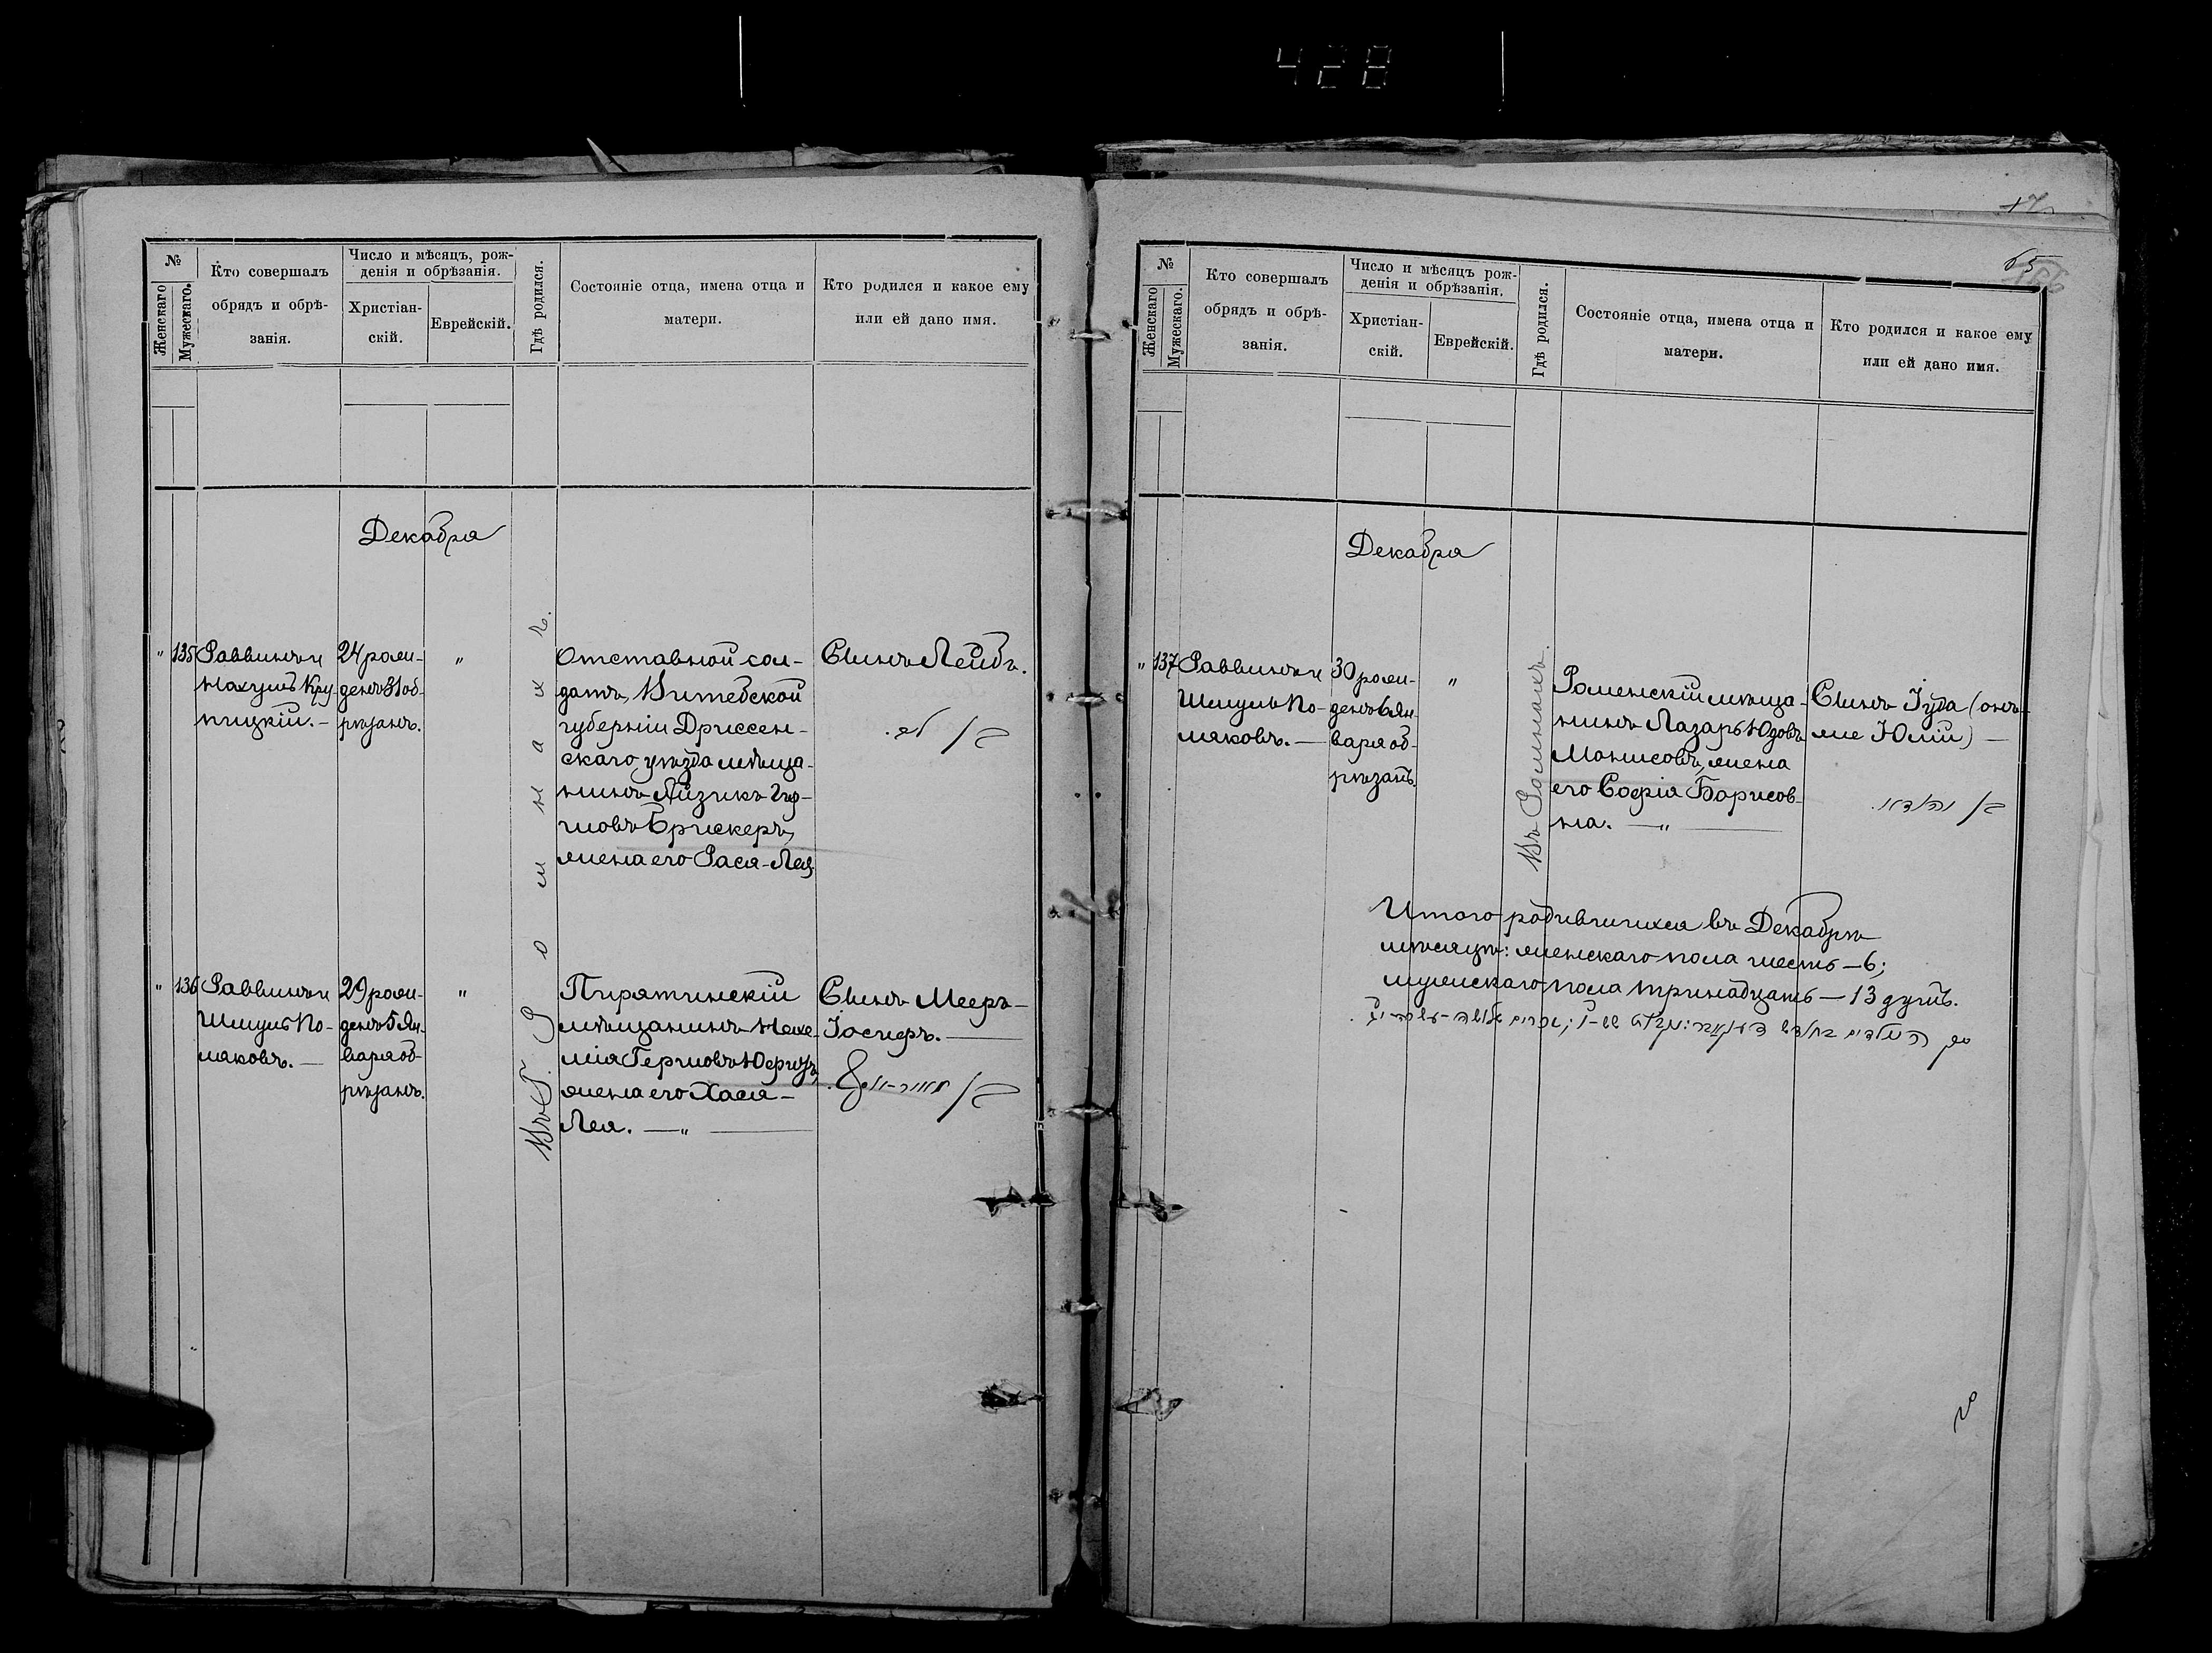 428
№
Женскаго
Мужескаго.
Кто совершалъ
обрядъ и обрѣ-
занія.
Число и мѣсяцъ, рож-
денія и обрѣзанія.
Христіан-
скій.
Еврейскій.
Гдѣ родился.
Состояніе отца, имена отца и
матери.
Кто родился и какое ему
или ей дано имя.
Декабря
" 135
Раввинъ и
Нахумъ Кру-
пицкій. –
24 рож-
денъ 31 об-
рѣзанъ.
"
Въ г. Ромнахъ.
Отставной сол-
датъ, Витебской
губерніи Дриссен-
скаго уѣзда мѣща-
нинъ Айзикъ
Брискеръ,
жена его Рася-Лея
Сынъ Лейбъ.
" 136
Раввинъ и
Шмуль По-
ляковъ. —
29 рож-
денъ 5 Ян-
варя об-
рѣзанъ.
"
Пирятинскій
мѣщанинъ Нехе-
мія Гершовъ
жена его Хася-
Лея. — " —
Сынъ Мееръ-
Іосифъ. —
17
65
№
Женскаго
Мужескаго.
Кто совершалъ
обрядъ и обрѣ-
занія.
Число и мѣсяцъ рож-
денія и обрѣзанія.
Христіан-
скій.
Еврейскій.
Гдѣ родился.
Состояніе отца, имена отца и
матери.
Кто родился и какое ему
или ей дано имя.
Декабря
" 137
Раввинъ и
Шмуль По-
ляковъ. —
30 рож-
денъ 6 Ян-
варя об-
рѣзанъ.
"
Въ Ромнахъ.
Роменскій мѣща-
нинъ Лазарь Юдовъ
Монисовъ, жена
его Софія Борисов-
на. — " —
Сынъ Іуда (онъ-
же Юлій) —
Итого родившихся въ Декабрѣ
мѣсяцѣ: женскаго пола шесть — 6;
мужескаго пола тринадцать — 13 душъ.